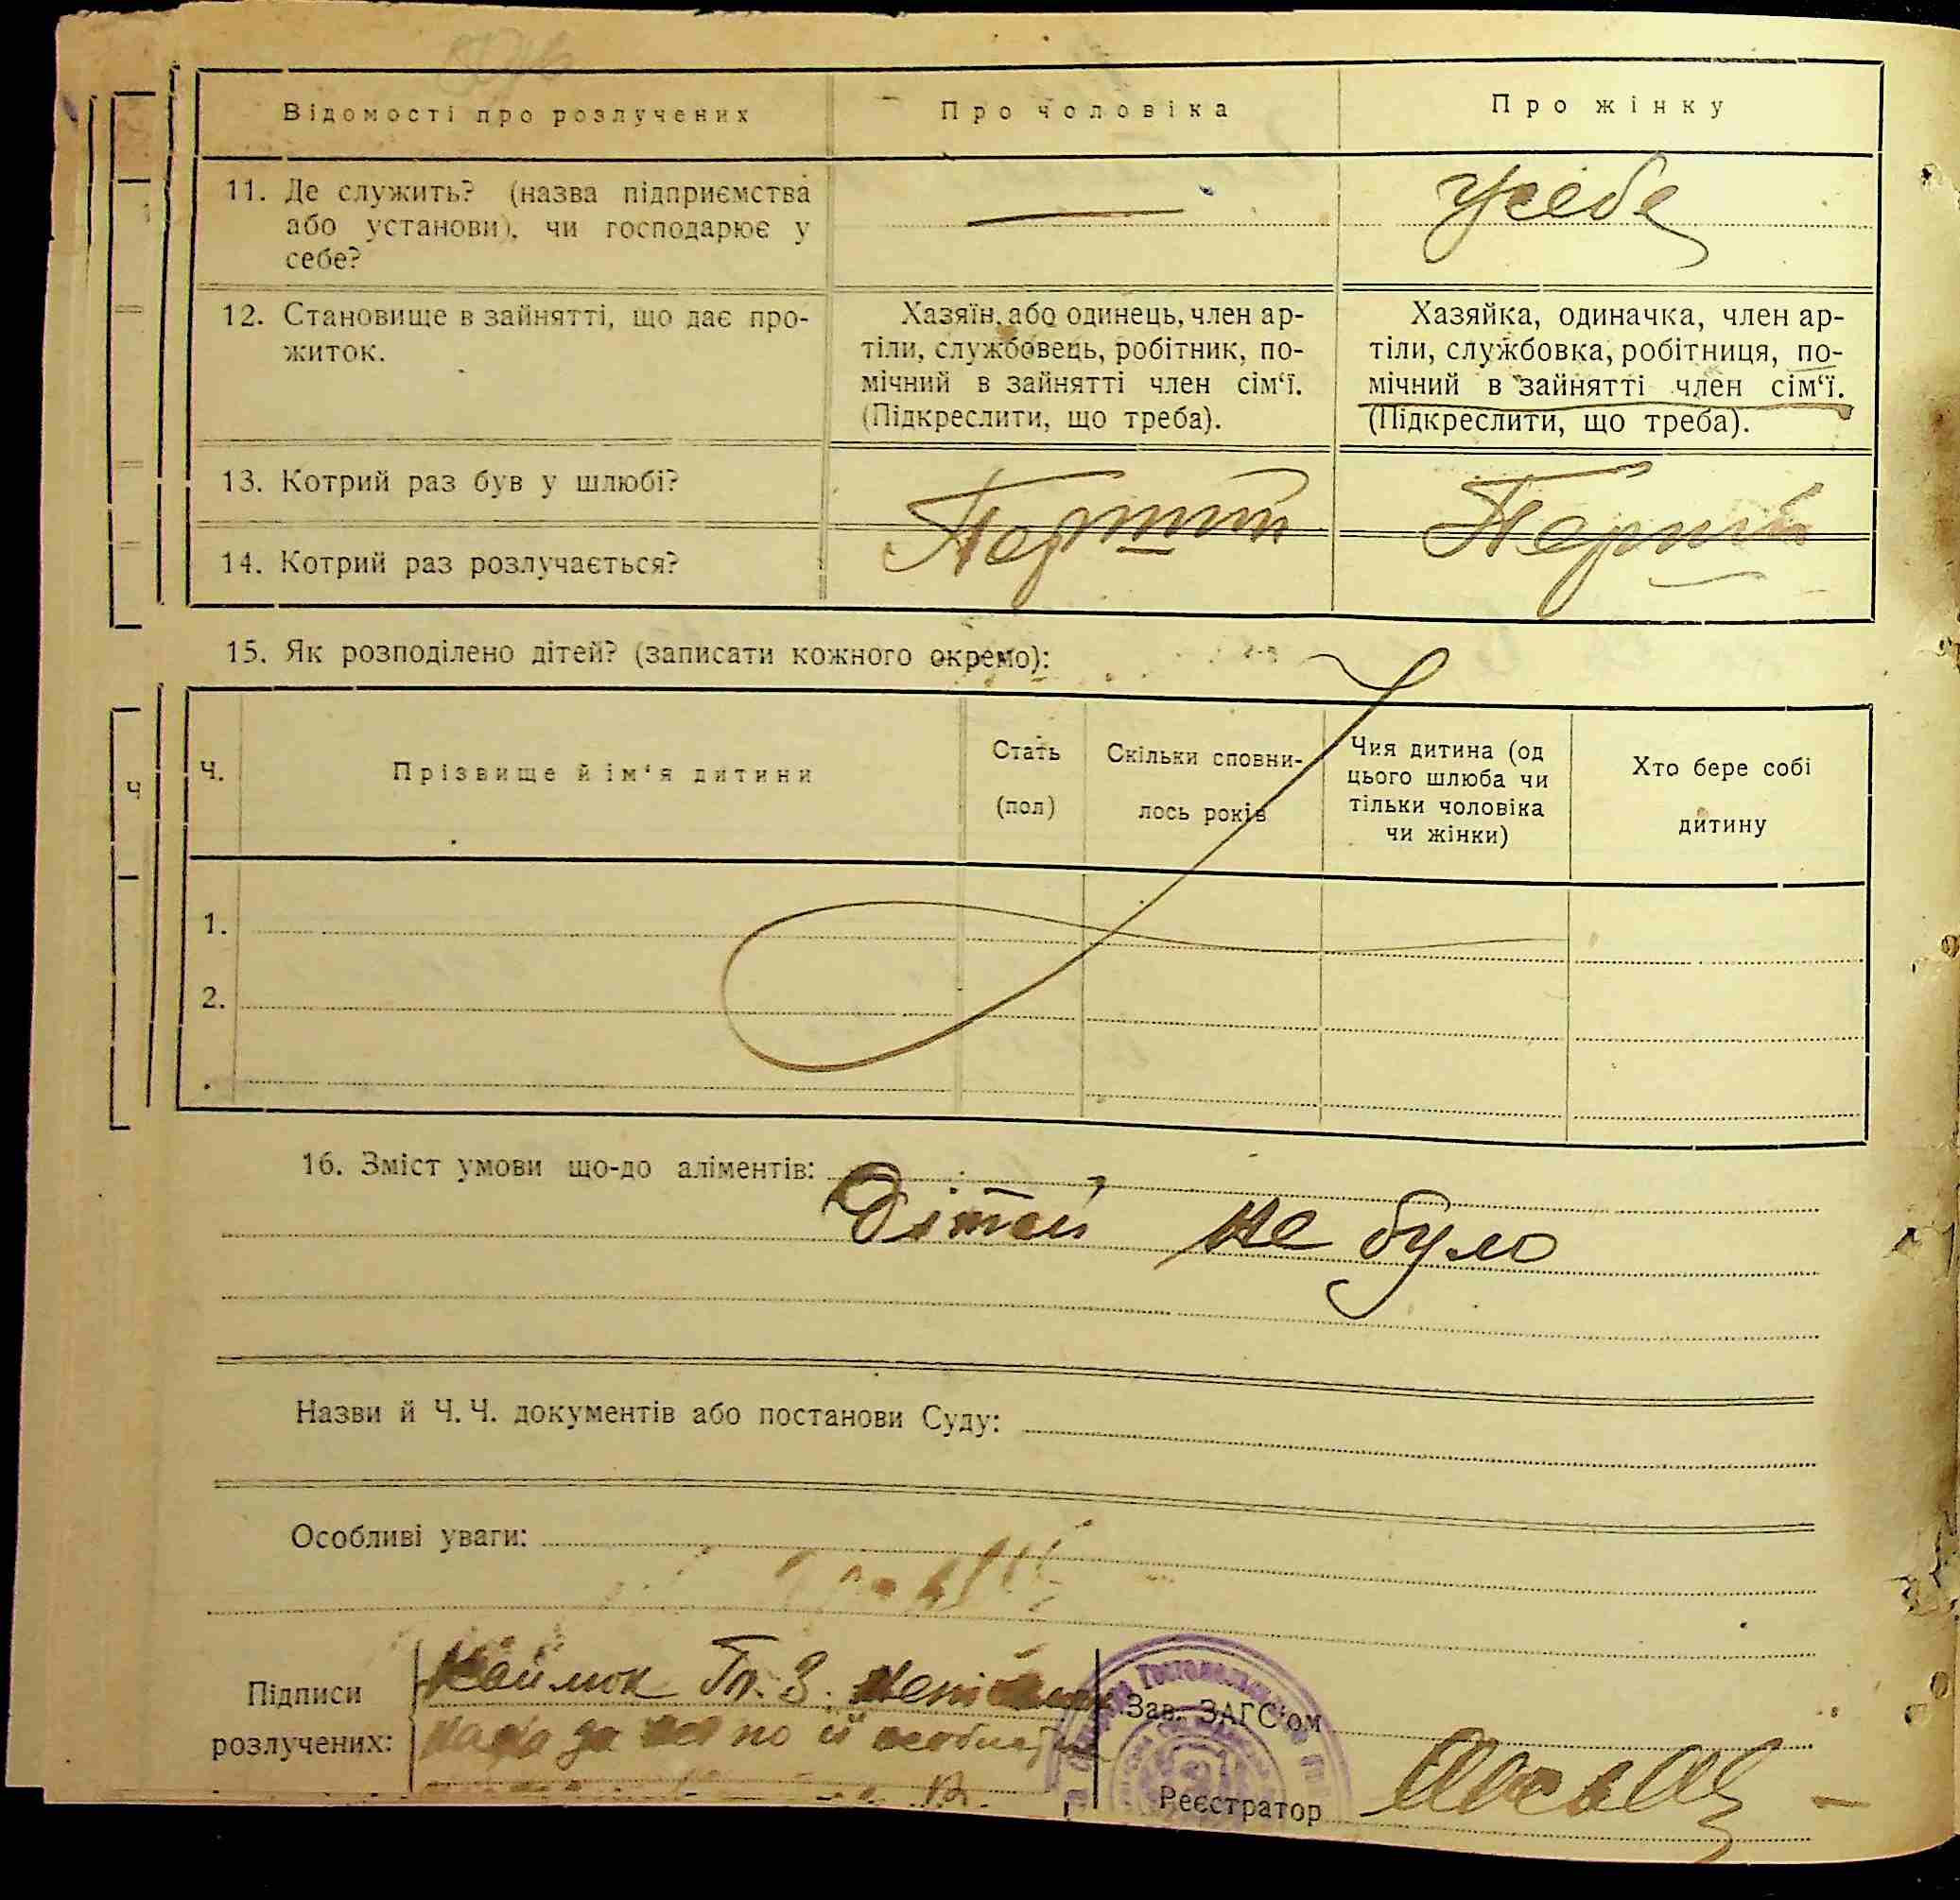 Відомості про розлучених
Про чоловіка
Про жінку
11. Де служить? (назва підприємства
або установи), чи господарює у
себе?
—
у себе
12. Становище в зайнятті, що дає про-
житок.
Хазяїн, або одинець, член ар-
тіли, службовець, робітник, по-
мічний в зайнятті член сім‘ї.
(Підкреслити, що треба).
Хазяйка, одиначка, член ар-
тіли, службовка, робітниця, по-
мічний в зайнятті член сім‘ї.
(Підкреслити, що треба).
13. Котрий раз був у шлюбі?
14. Котрий раз розлучається?
Перший
Перший
15. Як розподілено дітей? (записати кожного окремо):
Ч.
Ч.
Прізвище й ім‘я дитини
Стать
(пол)
Скільки сповни-
лось років
Чия дитина (од
цього шлюба чи
тільки чоловіка
чи жінки)
Хто бере собі
дитину
1.
2.
16. Зміст умови що-до аліментів:
Дітей не було
Назви й Ч. Ч. документів або постанови Суду:
Особливі уваги:
Підписи
розлучених:
Зав. ЗАГС‘ом
Реєстратор